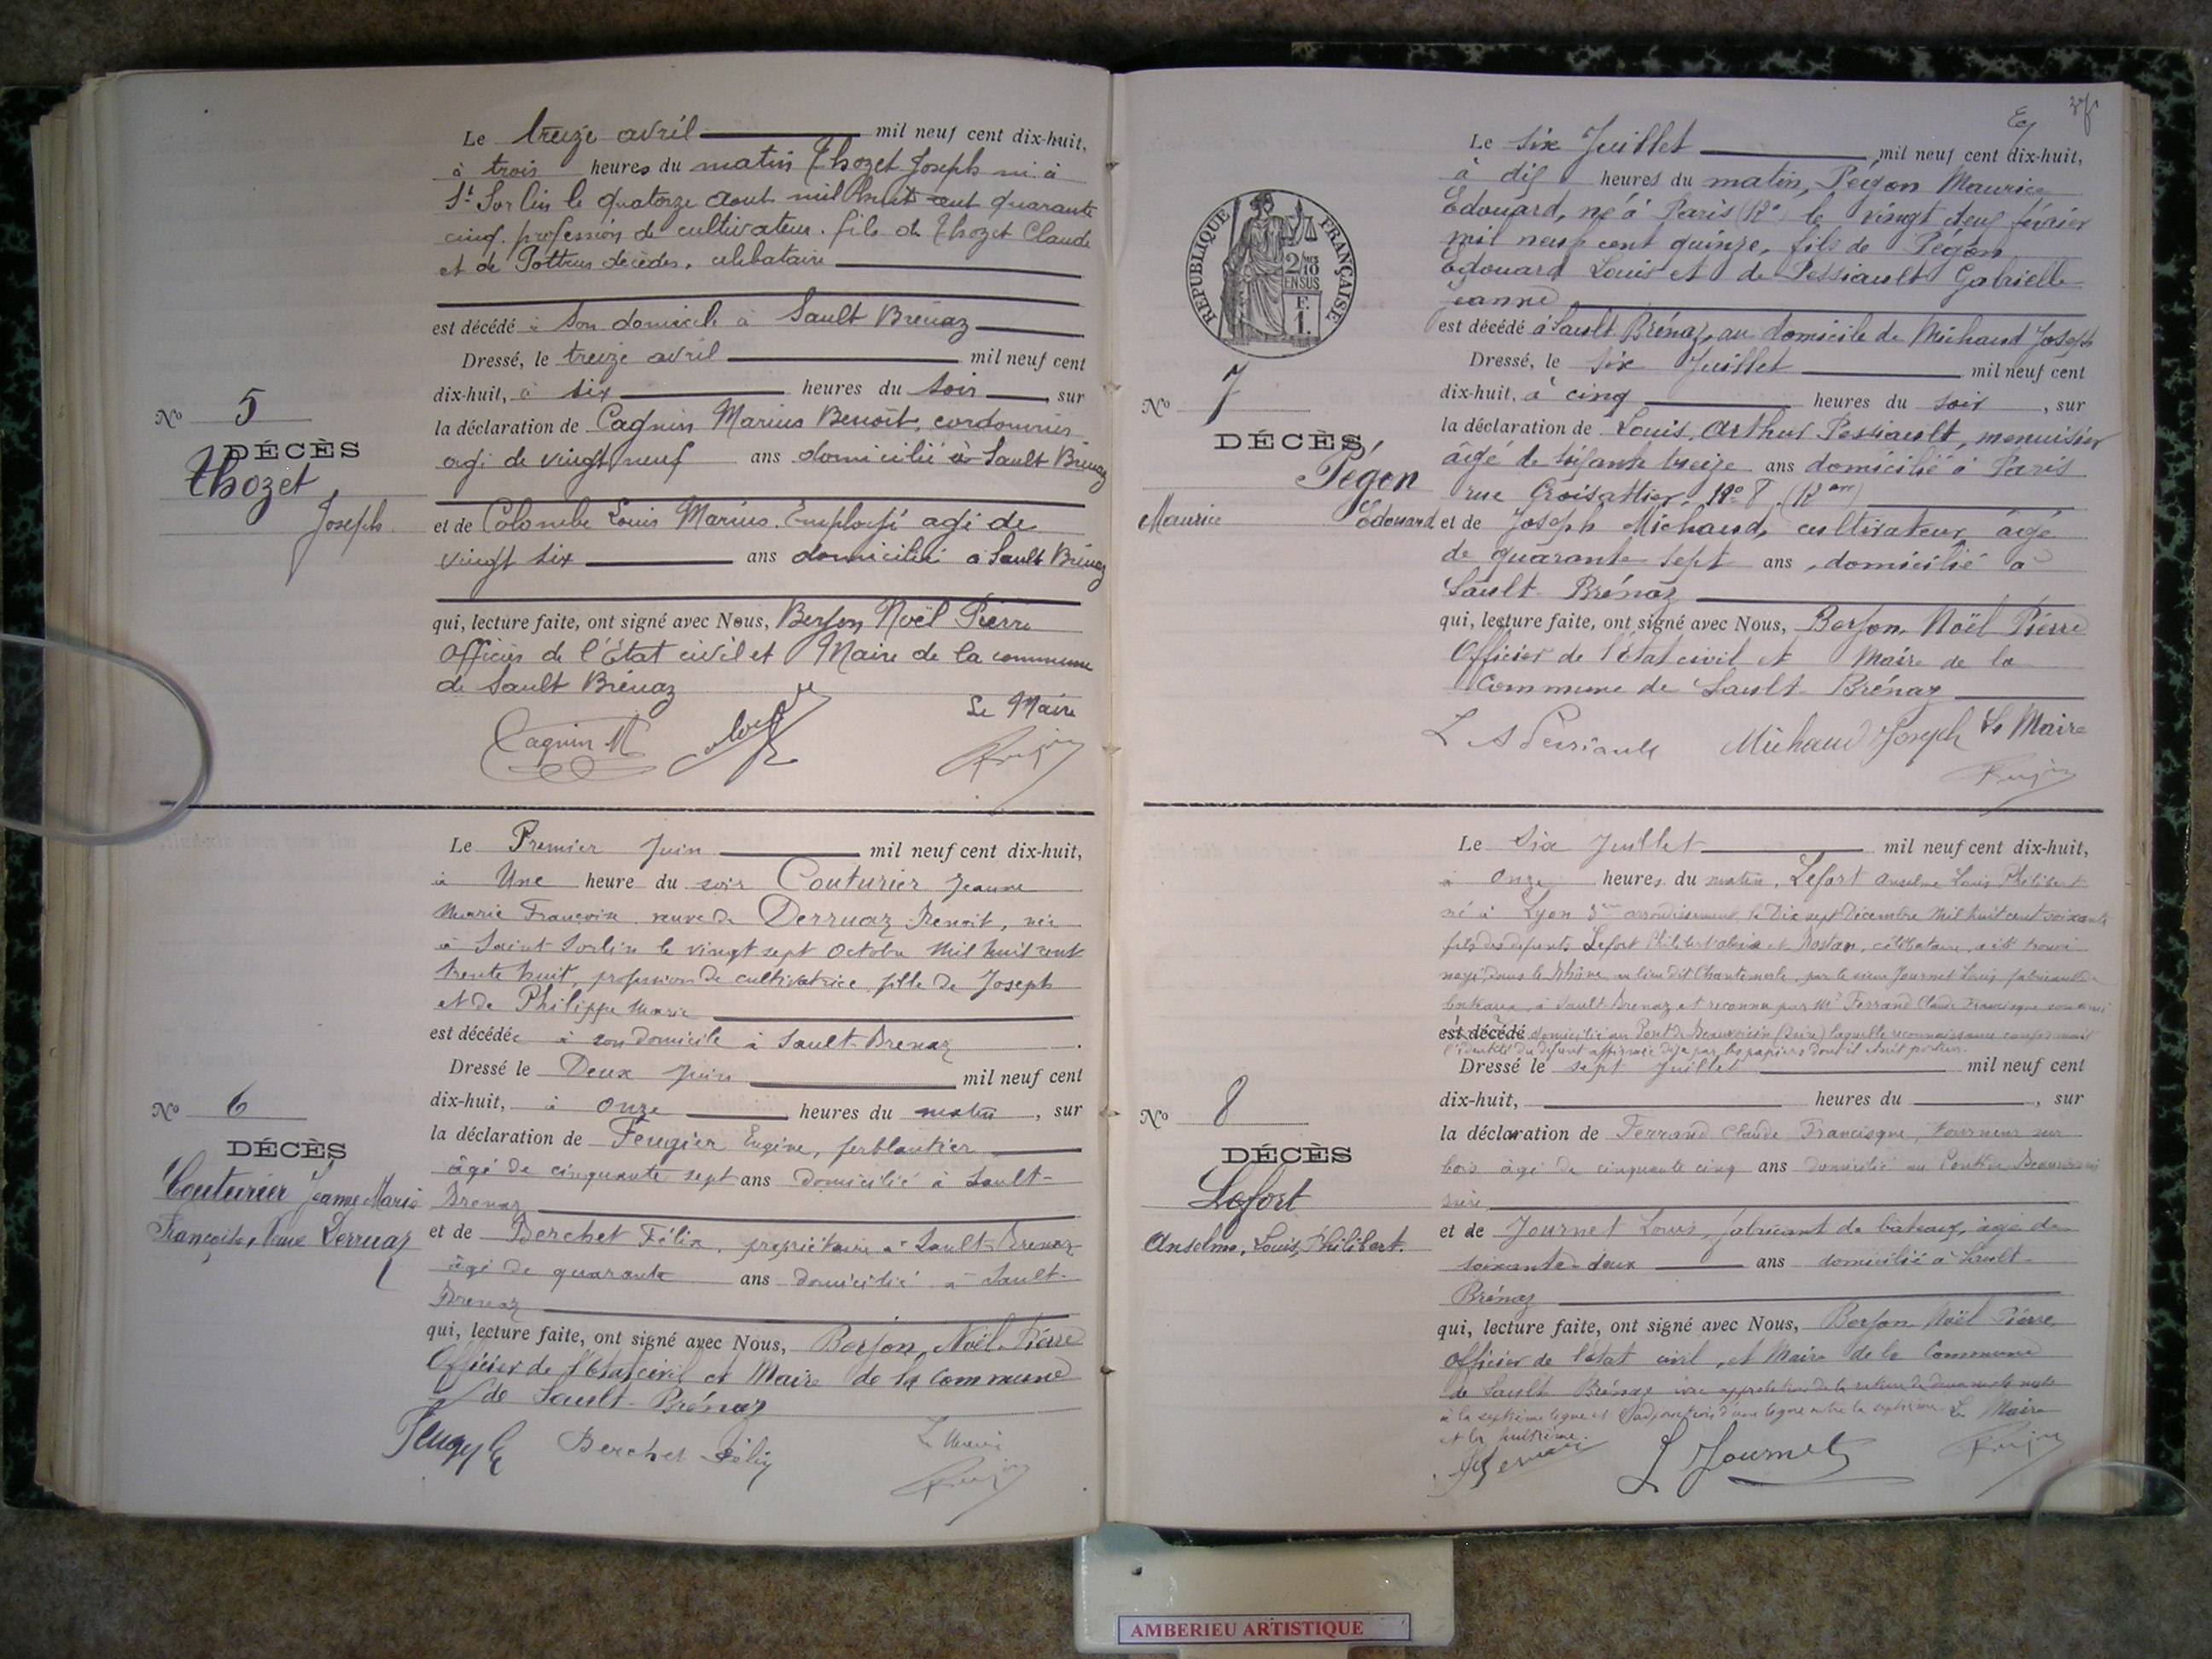 Le treize avril mil neuf cent dix-huit,
à trois heures du matin Thozet Joseph né à
St Sorlin le quatorze aout mil huit cent quarante
cinq. profession de cultivateur. fils de Thozet Claude
et de Pottrus décédés, celibataire
est décédé à son domicile à Sault Brénaz
Dressé, le treize avril mil neuf cent
dix-huit, à six heures du soir, sur
No 5
la déclaration de Cagnin Marius Benoit, cordonnier
DÉCÈS
agé de vingt neuf ans domicilié à Sault Brénaz
Thozet
Joseph
et de Colombe Louis Marius. Employé agé de
vingt six ans domicilié à Sault Brénaz
qui, lecture faite, ont signé avec Nous, Berjon Noël Pierre
Officier de l'Etat civil et Maire de la commune
de Sault Brénaz
Le Maire
Cagnin M
Le Premier Juin mil neuf cent dix-huit,
à Une heure du soir Couturier Jeanne
Marie Françoise veuve de Derruaz Benoit, née
à Saint Sorlin le vingt sept Octobre Mil huit cent
trente huit, profession de cultivatrice, fille de Joseph
et de Philippe Marie
est décédée à son domicile à Sault-Brenaz
Dressé le Deux Juin mil neuf cent
dix-huit, à Onze heures du matin, sur
No 6
la déclaration de Feugier Eugène, ferblantier
DÉCÈS
âgé de cinquante sept ans domicilié à Sault-
Couturier Jeanne Marie
Brenaz
Françoise, Veuve Derruaz
et de Berchet Félix, propriétaire à Sault Brenaz
âgé de quarante ans domicilié à Sault-
Brenaz
qui, lecture faite, ont signé avec Nous, Berjon, Noël Pierre
Officier de l'Etat civil et Maire de la Commune
de Sault-Brénaz
Berchet Félix
Le six Juillet mil neuf cent dix-huit,
à dix heures du matin, Pégon Maurice
Edouard, né à Paris (12e) le vingt deux février
mil neuf cent quinze, fils de Pégon
Edouard Louis et de Pessiault Gabrielle
Jeanne
RÉPUBLIQUE FRANÇAISE
2/10 EN SUS
F. 1.
est décédé à Sault Brénaz, au domicile de Michaud Joseph
Dressé, le six Juillet mil neuf cent
dix-huit, à cinq heures du soir, sur
No 7
la déclaration de Louis Arthur Pessiault, menuisier
DÉCÈS
âgé de soixante treize ans domicilié à Paris
Pégon
rue Crozatier, No 8, (12e arr)
Maurice Edouard
et de Joseph Michaud, cultivateur âgé
de quarante sept ans, domicilié à
Sault Brénaz
qui, lecture faite, ont signé avec Nous, Berjon, Noël Pierre
Officier de l'Etat civil et Maire de la
Commune de Sault-Brénaz
Michaud Joseph Le Maire
Le Six Juillet mil neuf cent dix-huit,
à onze heures du matin, Lefort Anselme Louis Philibert
né à Lyon 3me arrondissement le Dix sept Décembre Mil huit cent soixante
fils des défunts Lefort Philibert et Rostan, célibataire, a été trouvé
noyé dans le Rhône au lieu dit Chantemerle, par le sieur Journet Louis fabricant de
bateaux, à Sault-Brenaz et reconnu par Mr Ferrand Claude Francisque son ami
est décédé domicilié au Pont de Beauvoisin (Isère) laquelle reconnaissance confirmait
l'identité du défunt affirmée déjà par les papiers dont il était porteur.
Dressé le sept Juillet mil neuf cent
dix-huit, heures du, sur
No 8
la déclaration de Ferrand Claude Francisque, tourneur sur
DÉCÈS
bois âgé de cinquante cinq ans domicilié au Pont de Beauvoisin
Lefort
Isère
Anselme, Louis, Philibert.
et de Journet Louis, fabricant de bateaux, âgé de
soixante-deux ans domicilié à Sault-
Brénaz
qui, lecture faite, ont signé avec Nous, Berjon Noël Pierre
Officier de l'Etat civil, et Maire de la Commune
de Sault Brénaz avec approbation de la rature de deux mots nuls
à la septième ligne et l'adjonction d'une ligne entre la septième Le Maire
et la huitième.
L Journet
AMBERIEU ARTISTIQUE